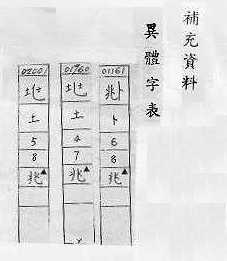 補充資料
異體字表
01161
卜
6
8
兆▲
01760
土
4
7
兆▲
02001
土
5
8
兆▲